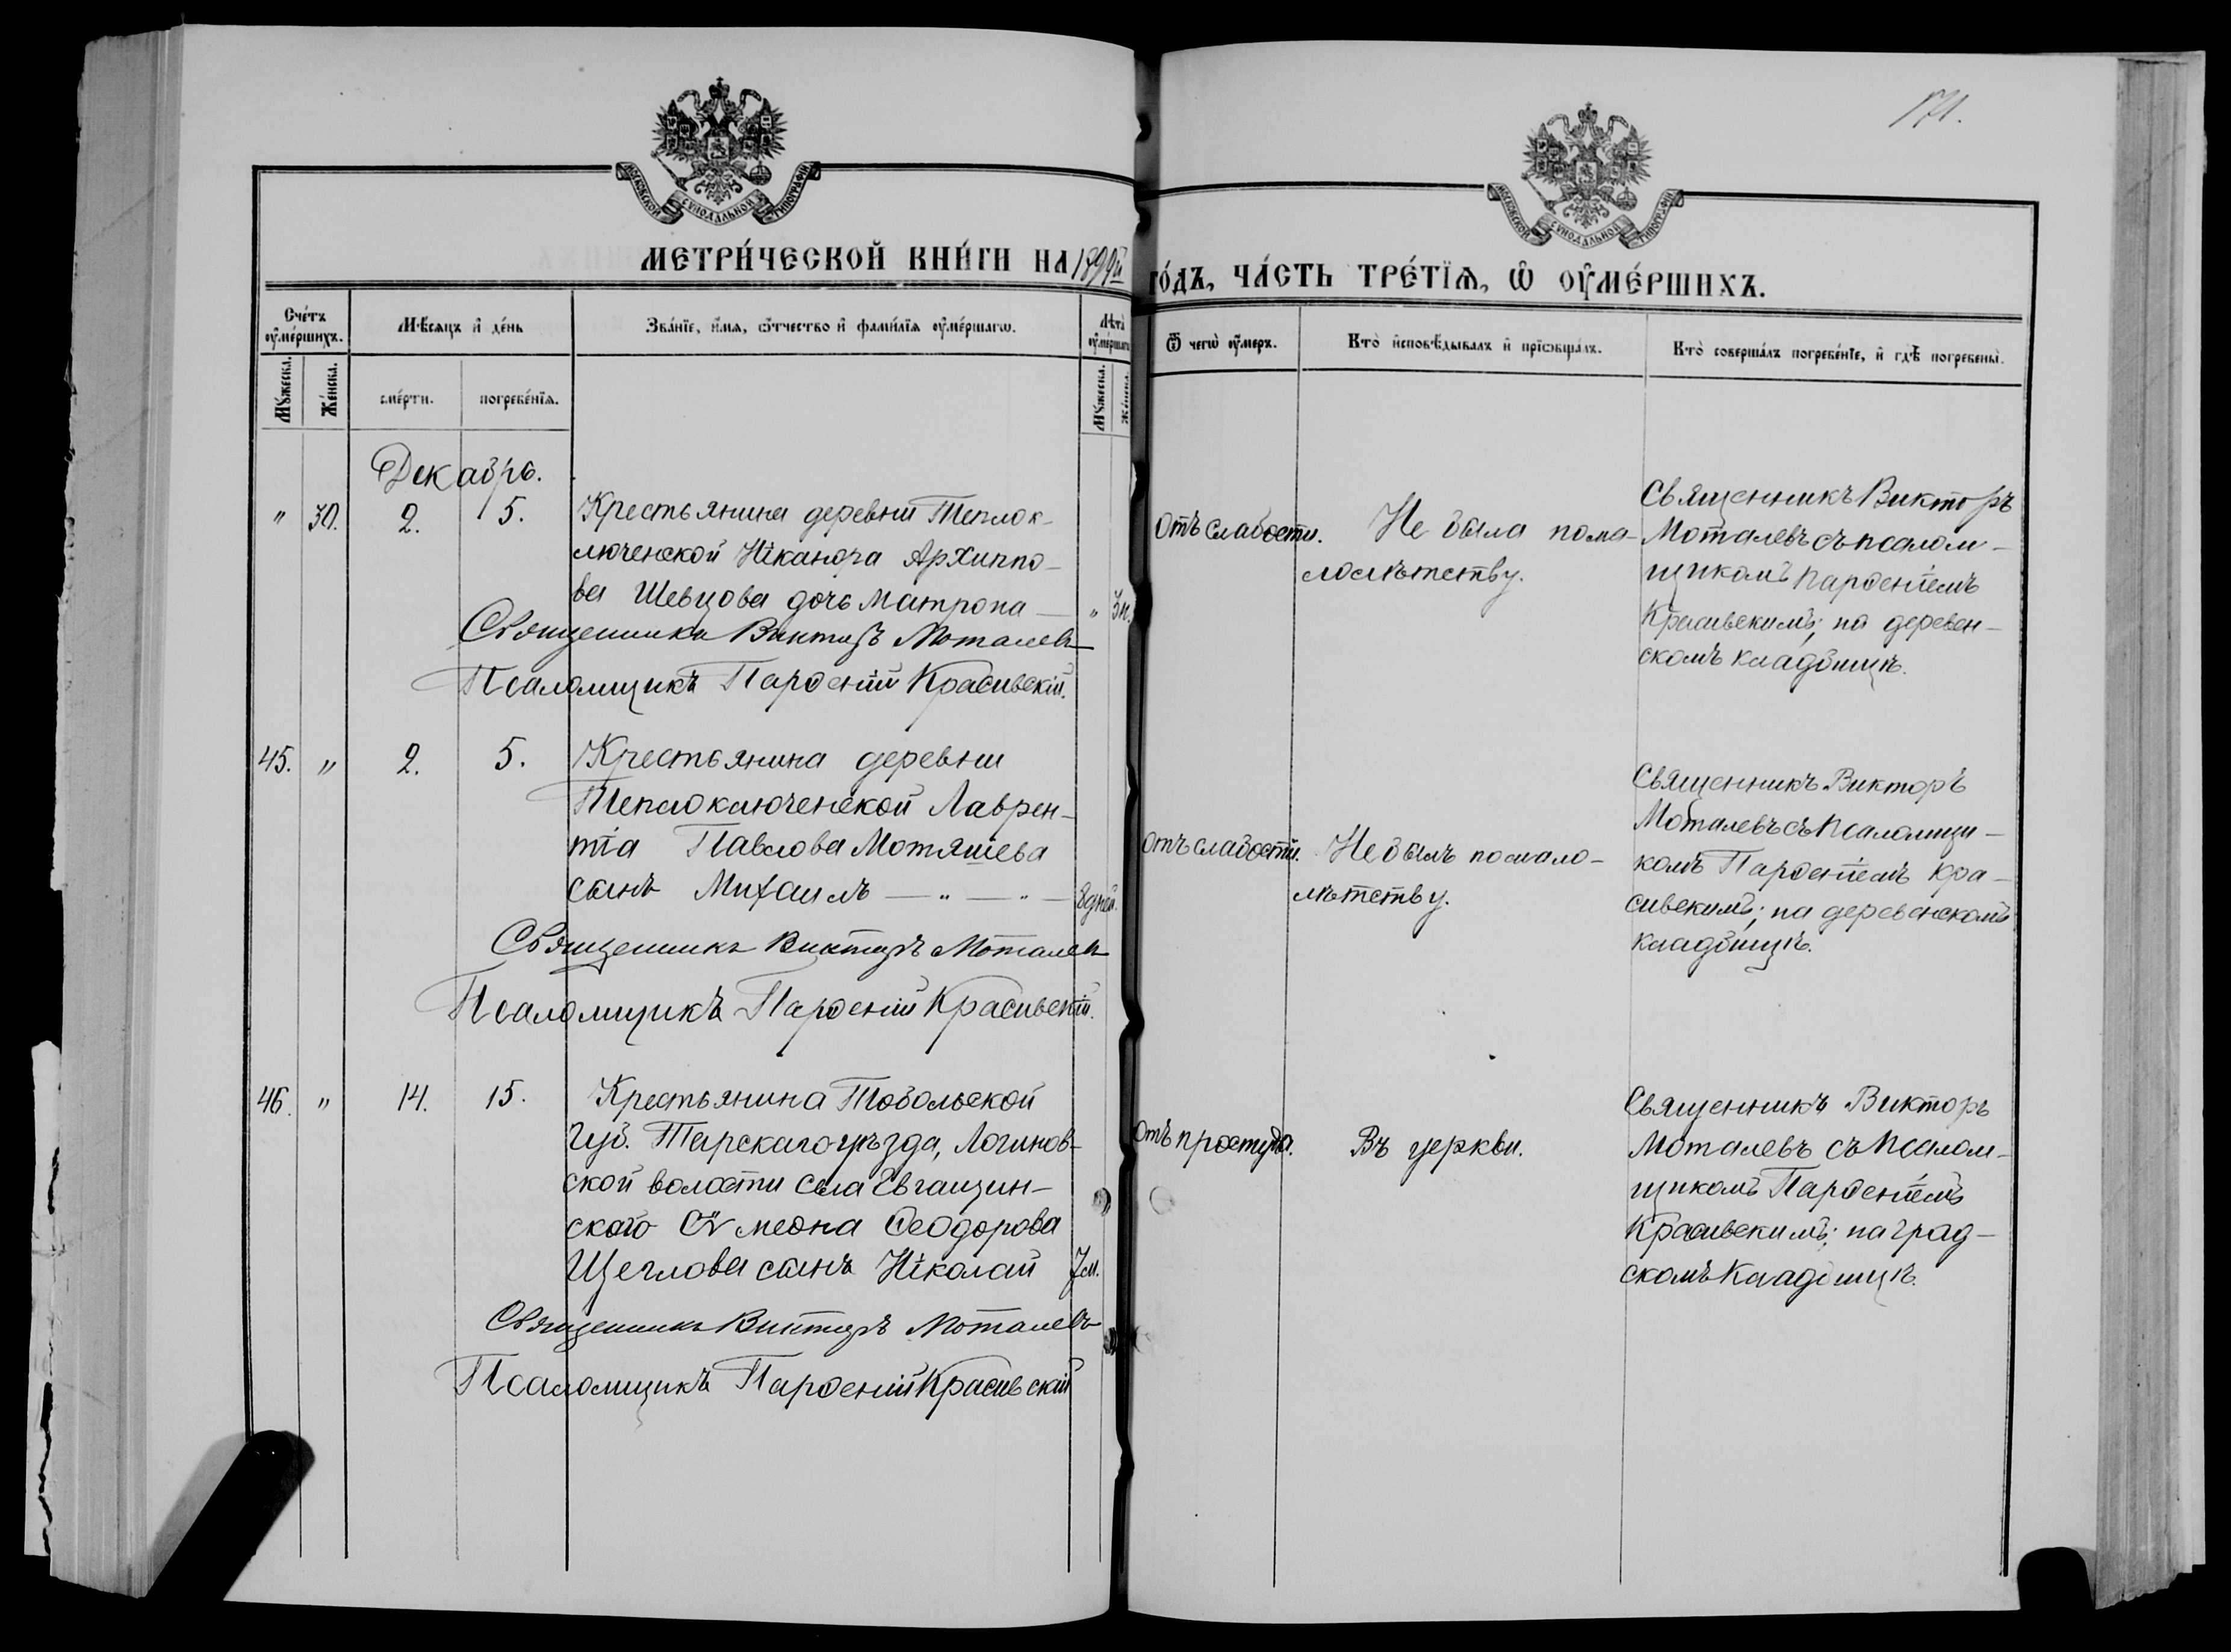 171.
МОСКОВСКОЙ СѴНОДАЛЬНОЙ ТИПОГРАФІИ
МОСКОВСКОЙ СѴНОДАЛЬНОЙ ТИПОГРАФІИ
МЕТРИ́ЧЕСКОЙ КНИ́ГИ НА 1899й
ГО́ДЪ, ЧА́СТЬ ТРЕ́ТЇѦ, Ѡ҆ ОУ҆МЕ́РШИХЪ.
Сче́тъ оу҆ме́ршихъ.
Мѣ́сяцъ и҆ де́нь
Зва́нїе, и҆́мѧ, ѻ҆́тчество и҆ фами́лїѧ оу҆ме́ршагѡ.
Лѣ́та оу҆ме́ршагѡ
Ѿ чегѡ̀ оу҆́меръ.
Кто̀ и҆сповѣ́дывалъ и҆ прїѡбща́лъ.
Кто̀ соверша́лъ погребе́нїе, и҆ гдѣ̀ погребены̀.
Мꙋ́жеска.
Же́нска.
сме́рти.
погребе́нїѧ.
Мꙋ́жеска.
Же́нска.
Декабрь.
" 30. 2. 5.
Крестьянина деревни Теплок-
люченской Нiканора Архиппо-
ва Шевцова дочь Матрона —
" 3н.
Священникъ Викторъ Моталевъ
Псаломщикъ Парѳеній Красивскій.
Отъ слабости.
Не была по ма-
лолѣтству.
Священникъ Викторъ
Моталевъ съ псалом-
щикомъ Парѳеніемъ
Красивскимъ; на деревен-
скомъ кладбищѣ.
45. " 2. 5.
Крестьянина деревни
Теплоключенской Лаврен-
тія Павлова Мотяшева
сынъ Михаилъ — " — " —
8 дней.
Священникъ Викторъ Моталевъ
Псаломщикъ Парѳеній Красивскій.
Отъ слабости.
Не былъ по мало-
лѣтству.
Священникъ Викторъ
Моталевъ съ псаломщи-
комъ Парѳеніемъ Кра-
сивскимъ; на деревенскомъ
кладбищѣ.
46. " 14. 15.
Крестьянина Тобольской
губ. Тарскаго уѣзда, Логинов-
ской волости села Евгащин-
скаго Сѵмеона Ѳеодорова
Щеглова сынъ Нiколай
7 м.
Священникъ Викторъ Моталевъ
Псаломщикъ Парѳеній Красивскій
Отъ простуды.
Въ церкви.
Священникъ Викторъ
Моталевъ съ псалом-
щикомъ Парѳеніемъ
Красивскимъ; на град-
скомъ кладбищѣ.